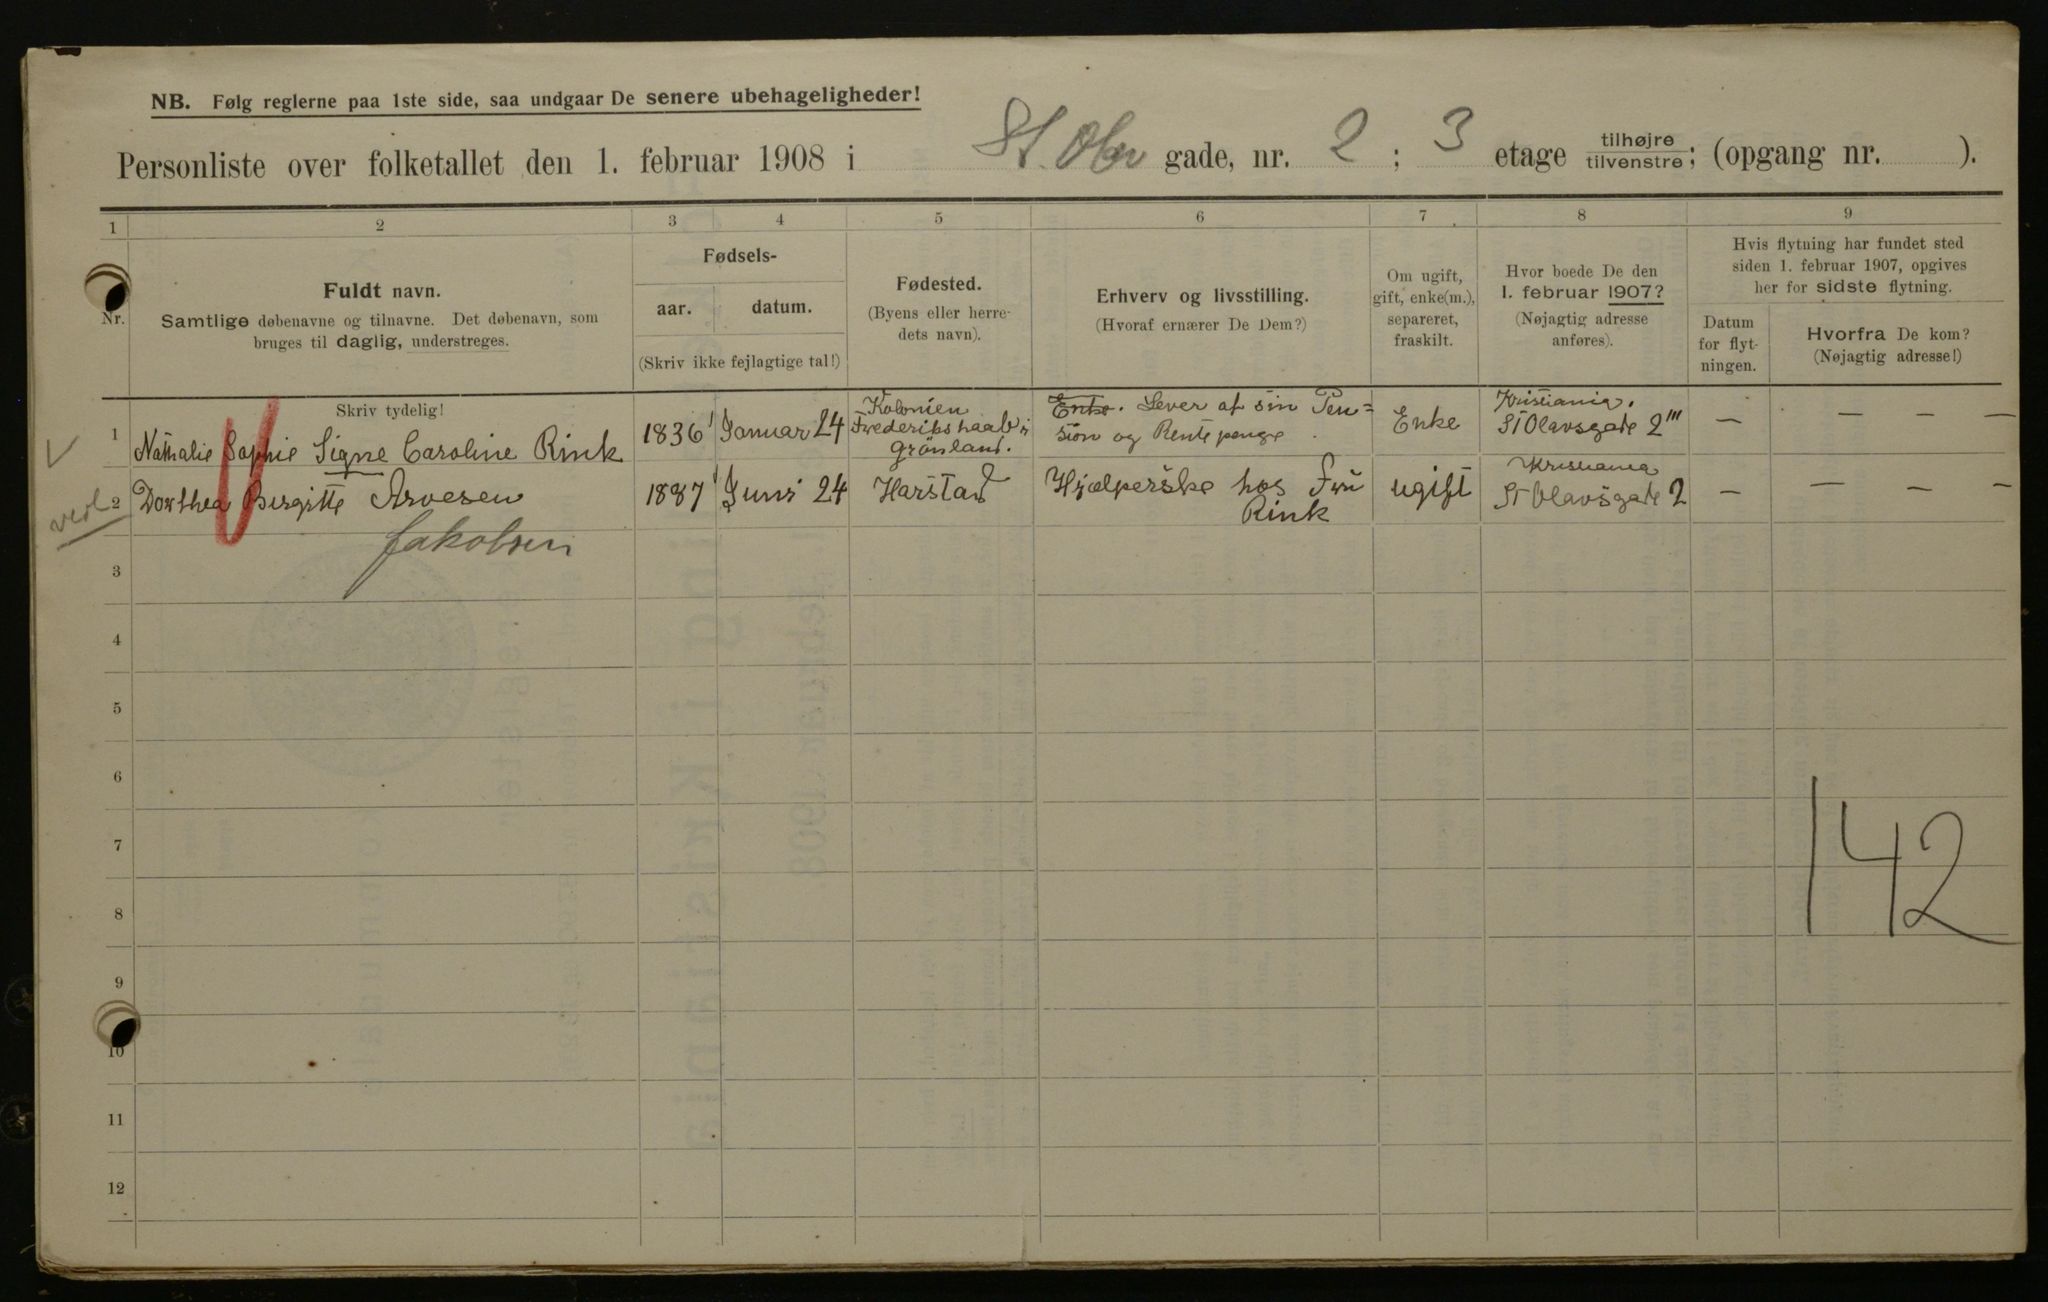 NB. Følg reglerne paa 1ste side, saa undgaar De senere ubehageligheder!
Personliste over folketallet den 1. februar 1908 i St. Olav gade, nr. 2 ; 3 etage tilhøjre tilvenstre; (opgang nr. ).
1 2 3 4 5 6 7 8 9
Nr.
Fuldt navn.
Samtlige døbenavne og tilnavne. Det døbenavn, som
bruges til daglig, understreges.
Fødsels-
aar. datum.
(Skriv ikke fejlagtige tal!)
Fødested.
(Byens eller herre-
dets navn).
Erhverv og livsstilling.
(Hvoraf ernærer De Dem?)
Om ugift,
gift, enke(m.),
separeret,
fraskilt.
Hvor boede De den
1. februar 1907?
(Nøjagtig adresse
anføres).
Hvis flytning har fundet sted
siden 1. februar 1907, opgives
her for sidste flytning.
Datum
for flyt-
ningen.
Hvorfra De kom?
(Nøjagtig adresse!)
Skriv tydelig!
1 Nathalie Sophie Signe Caroline Rink 1836 Januar 24
Kolonien
Frederikshaab i
Grønland.
Enke. Lever af sin Pen=
sion og Rentepenge.
Enke
Kristiania.
St Olavsgade 2'''
— — — —
2 Dorthea Birgitte Arvesen 1887 Juni 24 Harstad
Hjælperske hos Fru
Rink
ugift
Kristiania
St Olavsgade 2
— — — —
Jakobsen
3
4
5
6
7
8
9
10
11
12
142